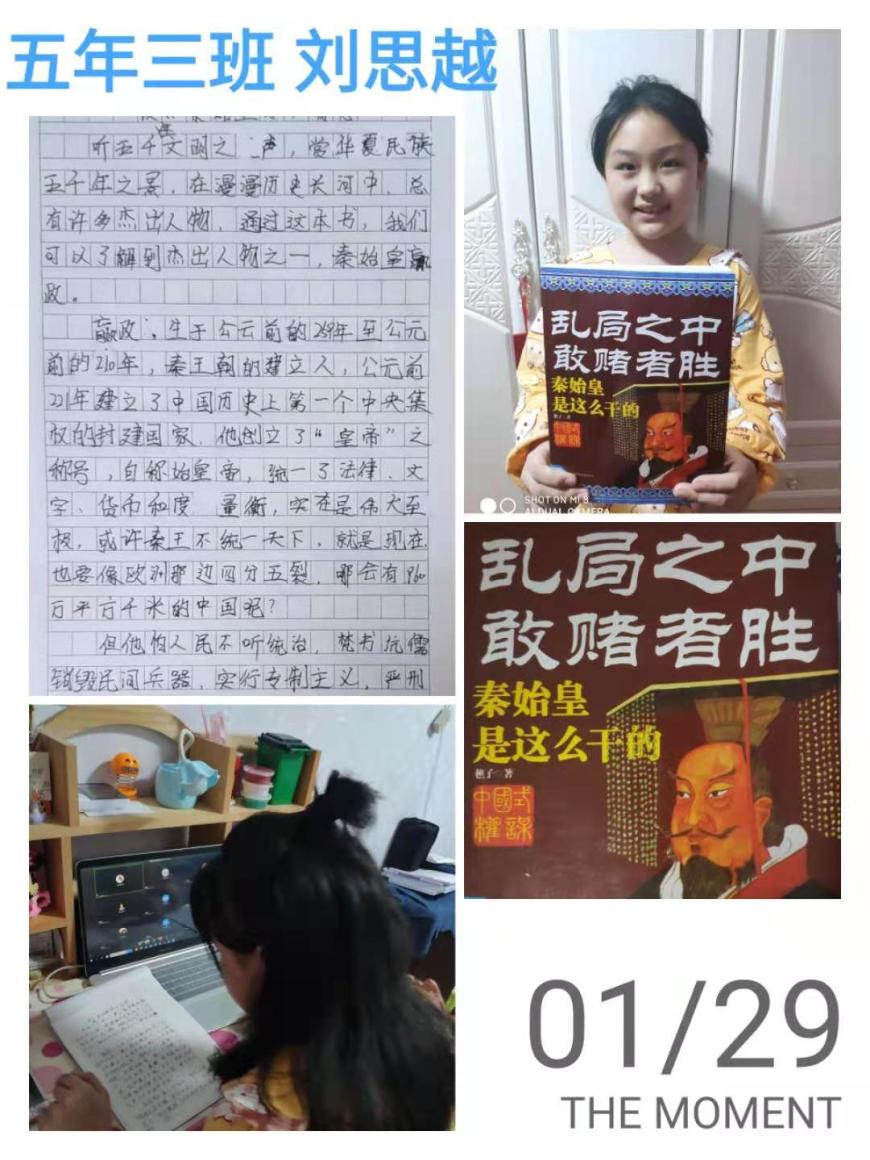 五年三班 刘思越
听五千文明之 声，赏华夏民族
五千年之景，在漫漫历史长河中，总
有许多杰出人物，通过这本书，我们
可以了解到杰出人物之一，秦始皇嬴
政。
嬴政，生于公元前的259年至公元
前的210年，秦王朝的建立人，公元前
221年建立了中国历史上第一个中央集
权的封建国家，他创立了“皇帝”之
称号，自称始皇帝，统一了法律、文
字、货币和度 量衡，实在是伟大至
极，或许秦王不统一天下，就是现在
也要像欧洲那边四分五裂，哪会有960
万平方千米的中国呢？
但他怕人民不听统治，焚书坑儒
销毁民间兵器，实行专制主义，严刑
乱局之中
敢赌者胜
秦始皇
是这么干的
SHOT ON MI 8
AI DUAL CAMERA
乱局之中
敢赌者胜
秦始皇
是这么干的
樵子 著
中國式
權謀
01/29
THE MOMENT